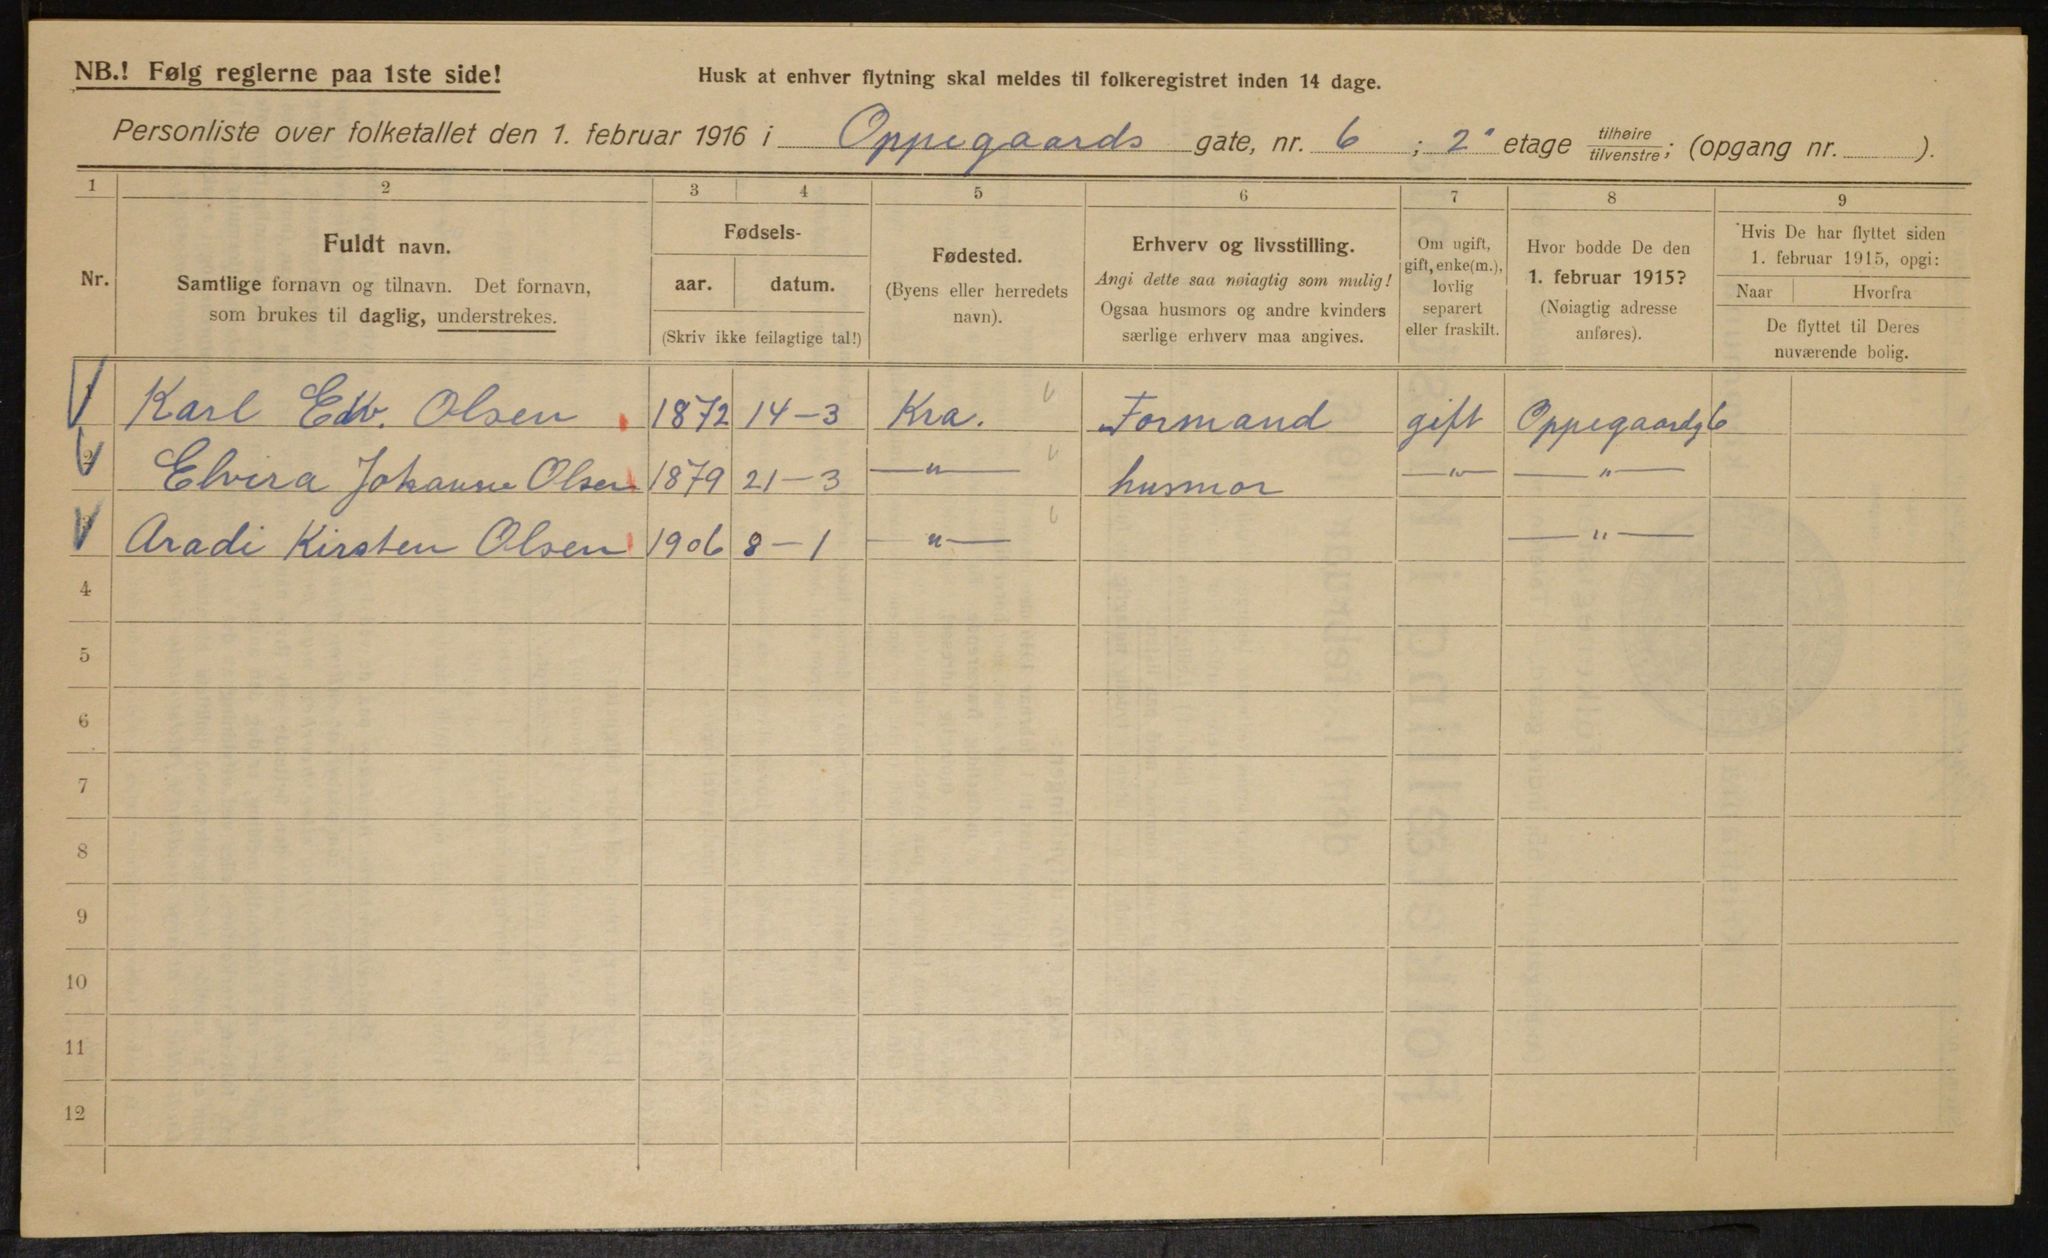 NB.! Følg reglerne paa 1ste side!
Husk at enhver flytning skal meldes til folkeregistret inden 14 dage.
Personliste over folketallet den 1. februar 1916 i Oppegaards gate, nr. 6 ; 2' etage tilhøire/tilvenstre; (opgang nr. ).
1 2 3 4 5 6 7 8 9
Nr.
Fuldt navn.
Samtlige fornavn og tilnavn. Det fornavn,
som brukes til daglig, understrekes.
Fødsels-
aar. datum.
(Skriv ikke feilagtige tal!)
Fødested.
(Byens eller herredets
navn).
Erhverv og livsstilling.
Angi dette saa nøiagtig som mulig!
Ogsaa husmors og andre kvinders
særlige erhverv maa angives.
Om ugift,
gift, enke(m.),
lovlig
separert
eller fraskilt.
Hvor bodde De den
1. februar 1915?
(Nøiagtig adresse
anføres).
Hvis De har flyttet siden
1. februar 1915, opgi:
Naar Hvorfra
De flyttet til Deres
nuværende bolig.
1 Karl Edv. Olsen 1872 14-3 Kra. Formand gift Oppegaardsg 6
2 Elvira Johanne Olsen 1879 21-3 —"— husmor —"— —"—
3 Aradi Kirsten Olsen 1906 8-1 —"— —"—
4
5
6
7
8
9
10
11
12